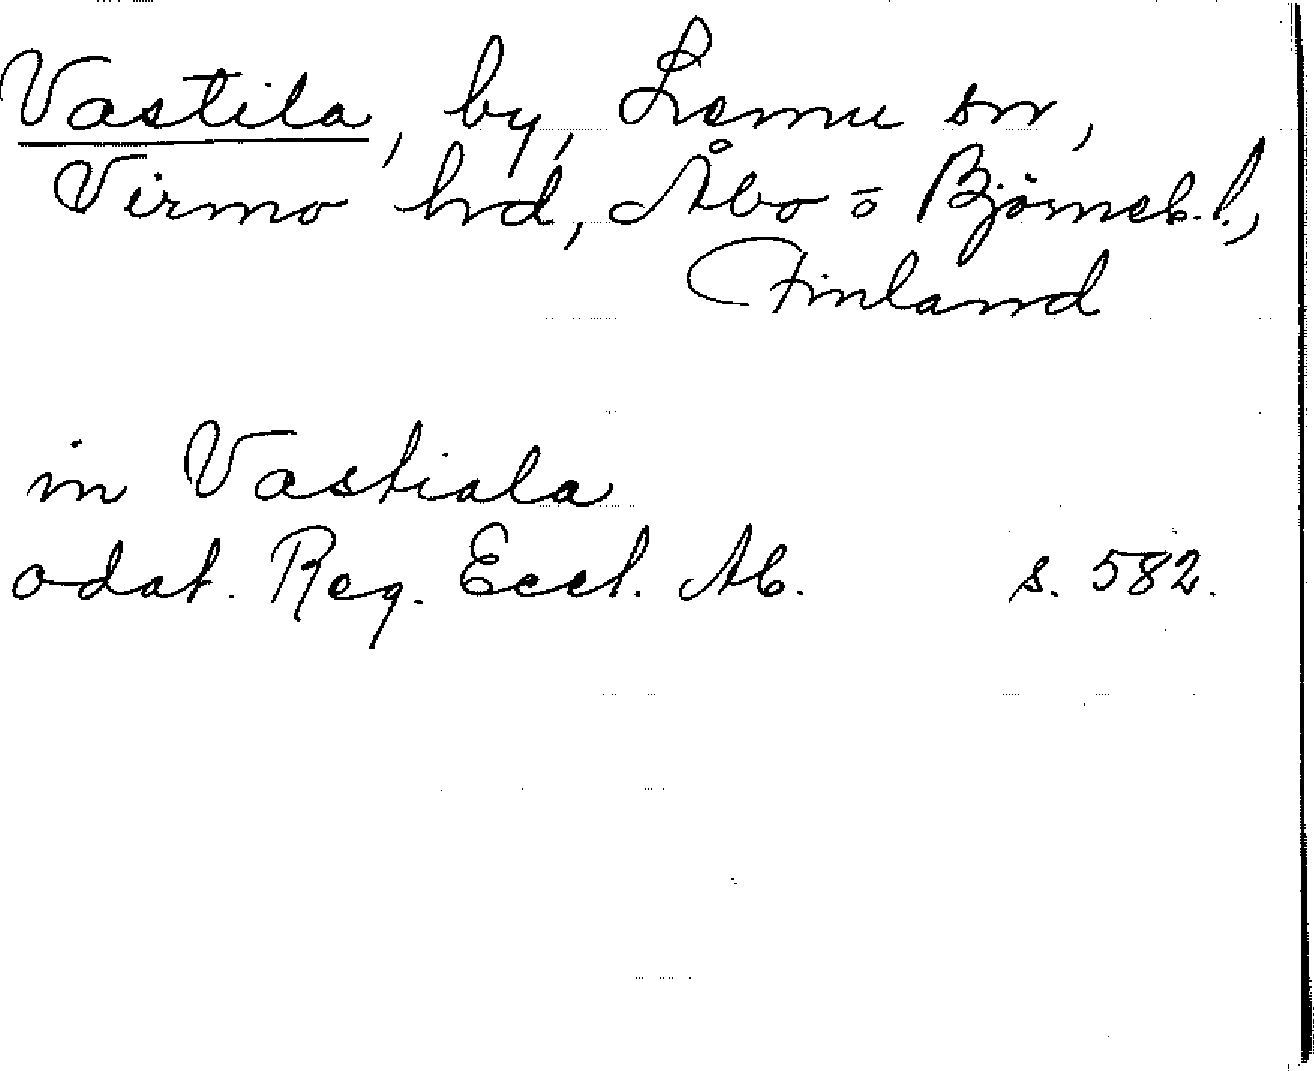 Vastila, by, Lemu sn,
Virmo hd, Åbo o Björneb. l.,
Finland
in Vastiala
odat. Reg. Eccl. Ab. s. 582.